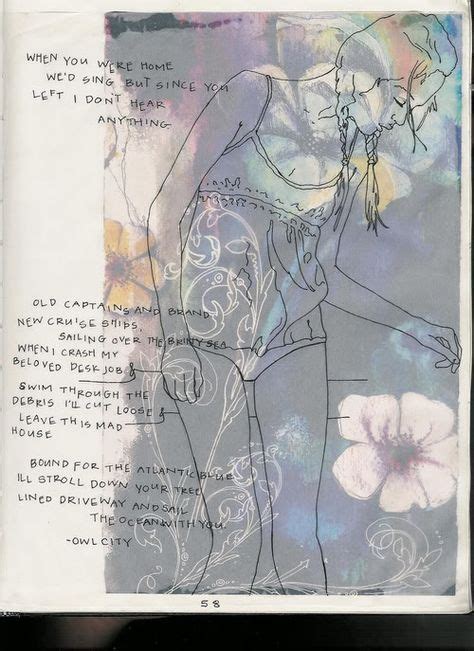 WHEN YOU WERE HOME
WE'D SING BUT SINCE YOU
LEFT I DON'T HEAR
ANYTHING.
OLD CAPTAINS AND BRAND
NEW CRUISE SHIPS,
SAILING OVER THE BRINY SEA
WHEN I CRASH MY
BELOVED DESK JOB &
SWIM THROUGH THE
DEBRIS I'LL CUT LOOSE &
LEAVE THIS MAD
HOUSE
BOUND FOR THE ATLANTIC BLUE
ILL STROLL DOWN YOUR TREE
LINED DRIVEWAY AND SAIL
THE OCEAN WITH YOU.
-OWL CITY
58